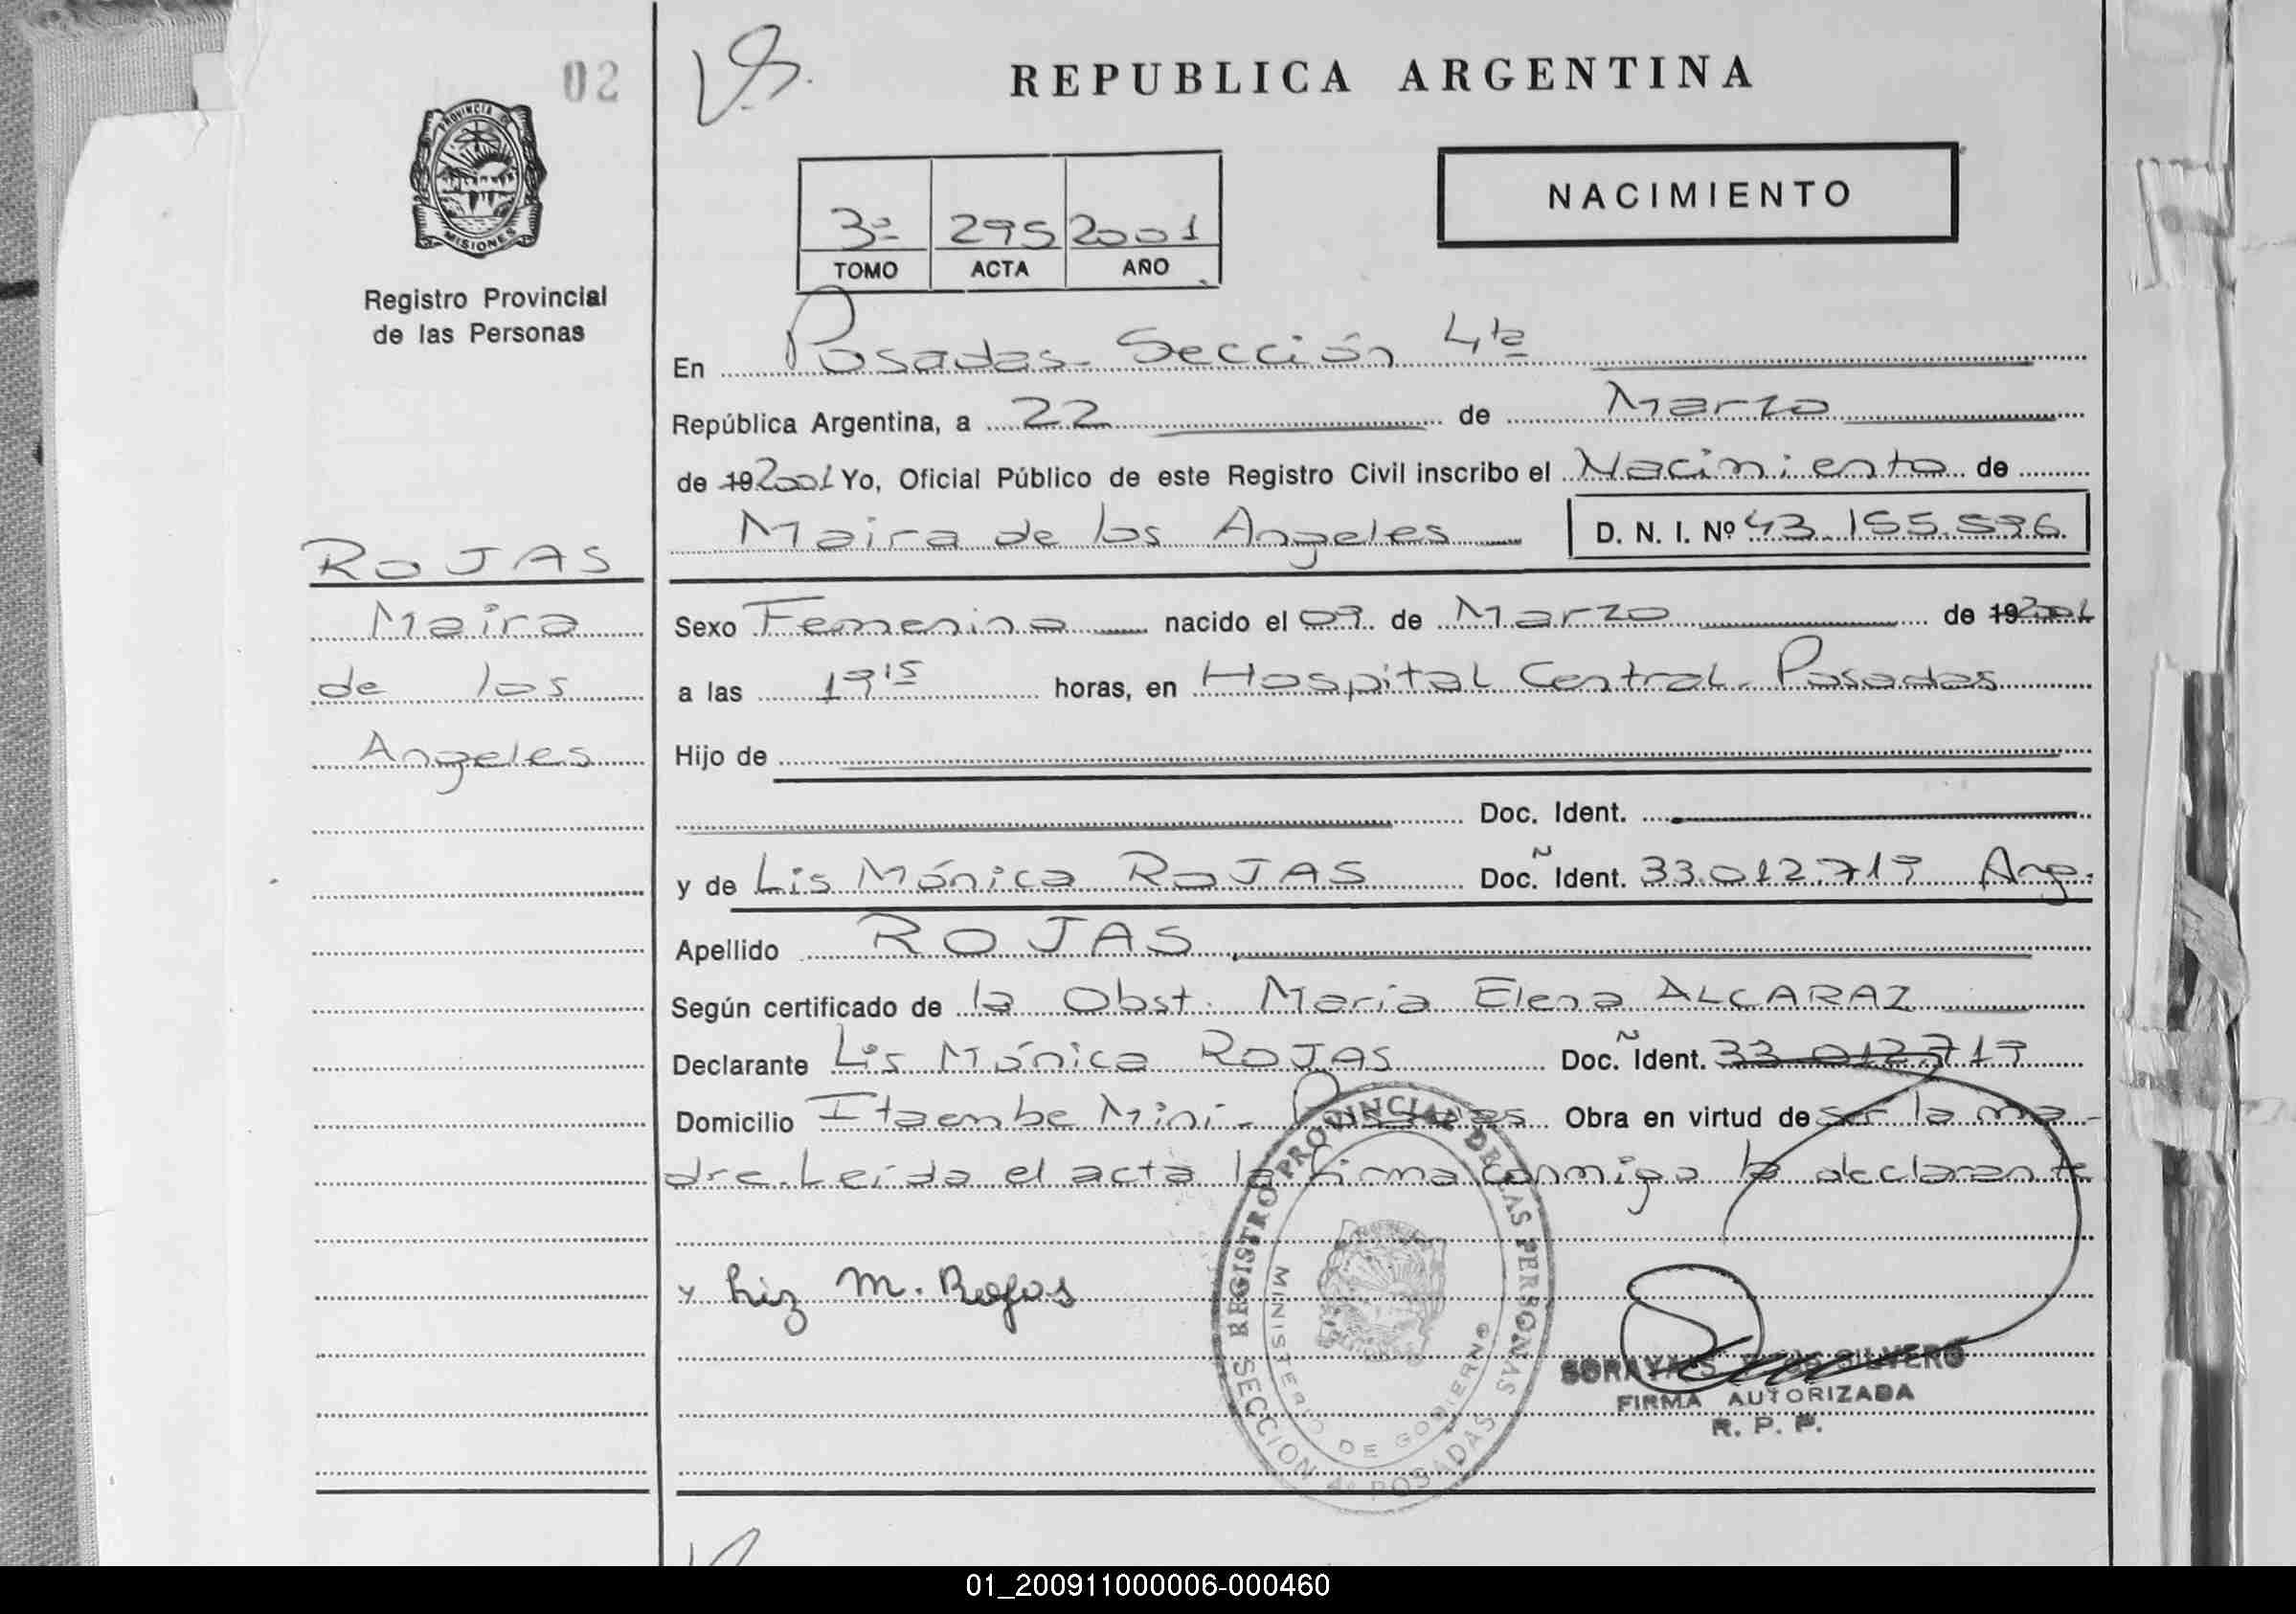 02
REPUBLICA ARGENTINA
PROVINCIA DE
MISIONES
Registro Provincial
de las Personas
NACIMIENTO
3º 295 2001
TOMO ACTA AÑO
En Posadas - Sección 4ta
República Argentina, a 22 de Marzo
de 19 2001 Yo, Oficial Público de este Registro Civil inscribo el Nacimiento de
Maira de los Angeles D. N. I. Nº 43.155.596
ROJAS
Maira
de los
Angeles
Sexo Femenino nacido el 09 de Marzo de 19 2001
a las 19 15 horas, en Hospital Central - Posadas
Hijo de
Doc. Ident.
y de Lis Mónica ROJAS Doc. Ident. 33.012.719 Arg.
Apellido ROJAS
Según certificado de la Obst. María Elena ALCARAZ
Declarante Lis Mónica ROJAS Doc. Ident. 33.012.719
Domicilio Itaembe Mini - Posadas Obra en virtud de ser la ma-
dre. Leída el acta la firma conmigo la declarante
Liz M. Rojas
REGISTRO PROVINCIAL DE LAS PERSONAS
MINISTERIO DE GOBIERNO
SECCION 4ª POSADAS
SILVERO
FIRMA AUTORIZADA
R. P. P.
01_200911000006-000460